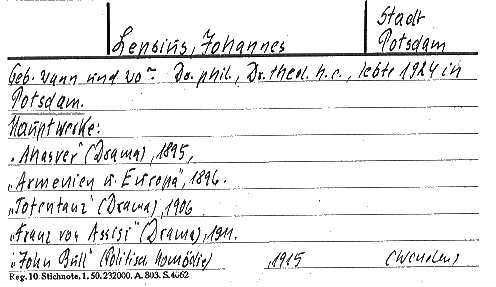 Stadt
Lepsius, Johannes Potsdam
Geb. wann und wo –: Dr. phil., Dr. theol. h. c., lebte 1924 in
Potsdam.
Hauptwerke:
„Ahasver" (Drama), 1895,
„Armenien u. Europa", 1896.
„Totentanz" (Drama), 1906
„Franz von Assisi" (Drama), 1911.
„John Bull" (Politisch Komödie) , 1915
Reg. 10. Stichnote. 1. 50. 232000. A. 803. S. 4662